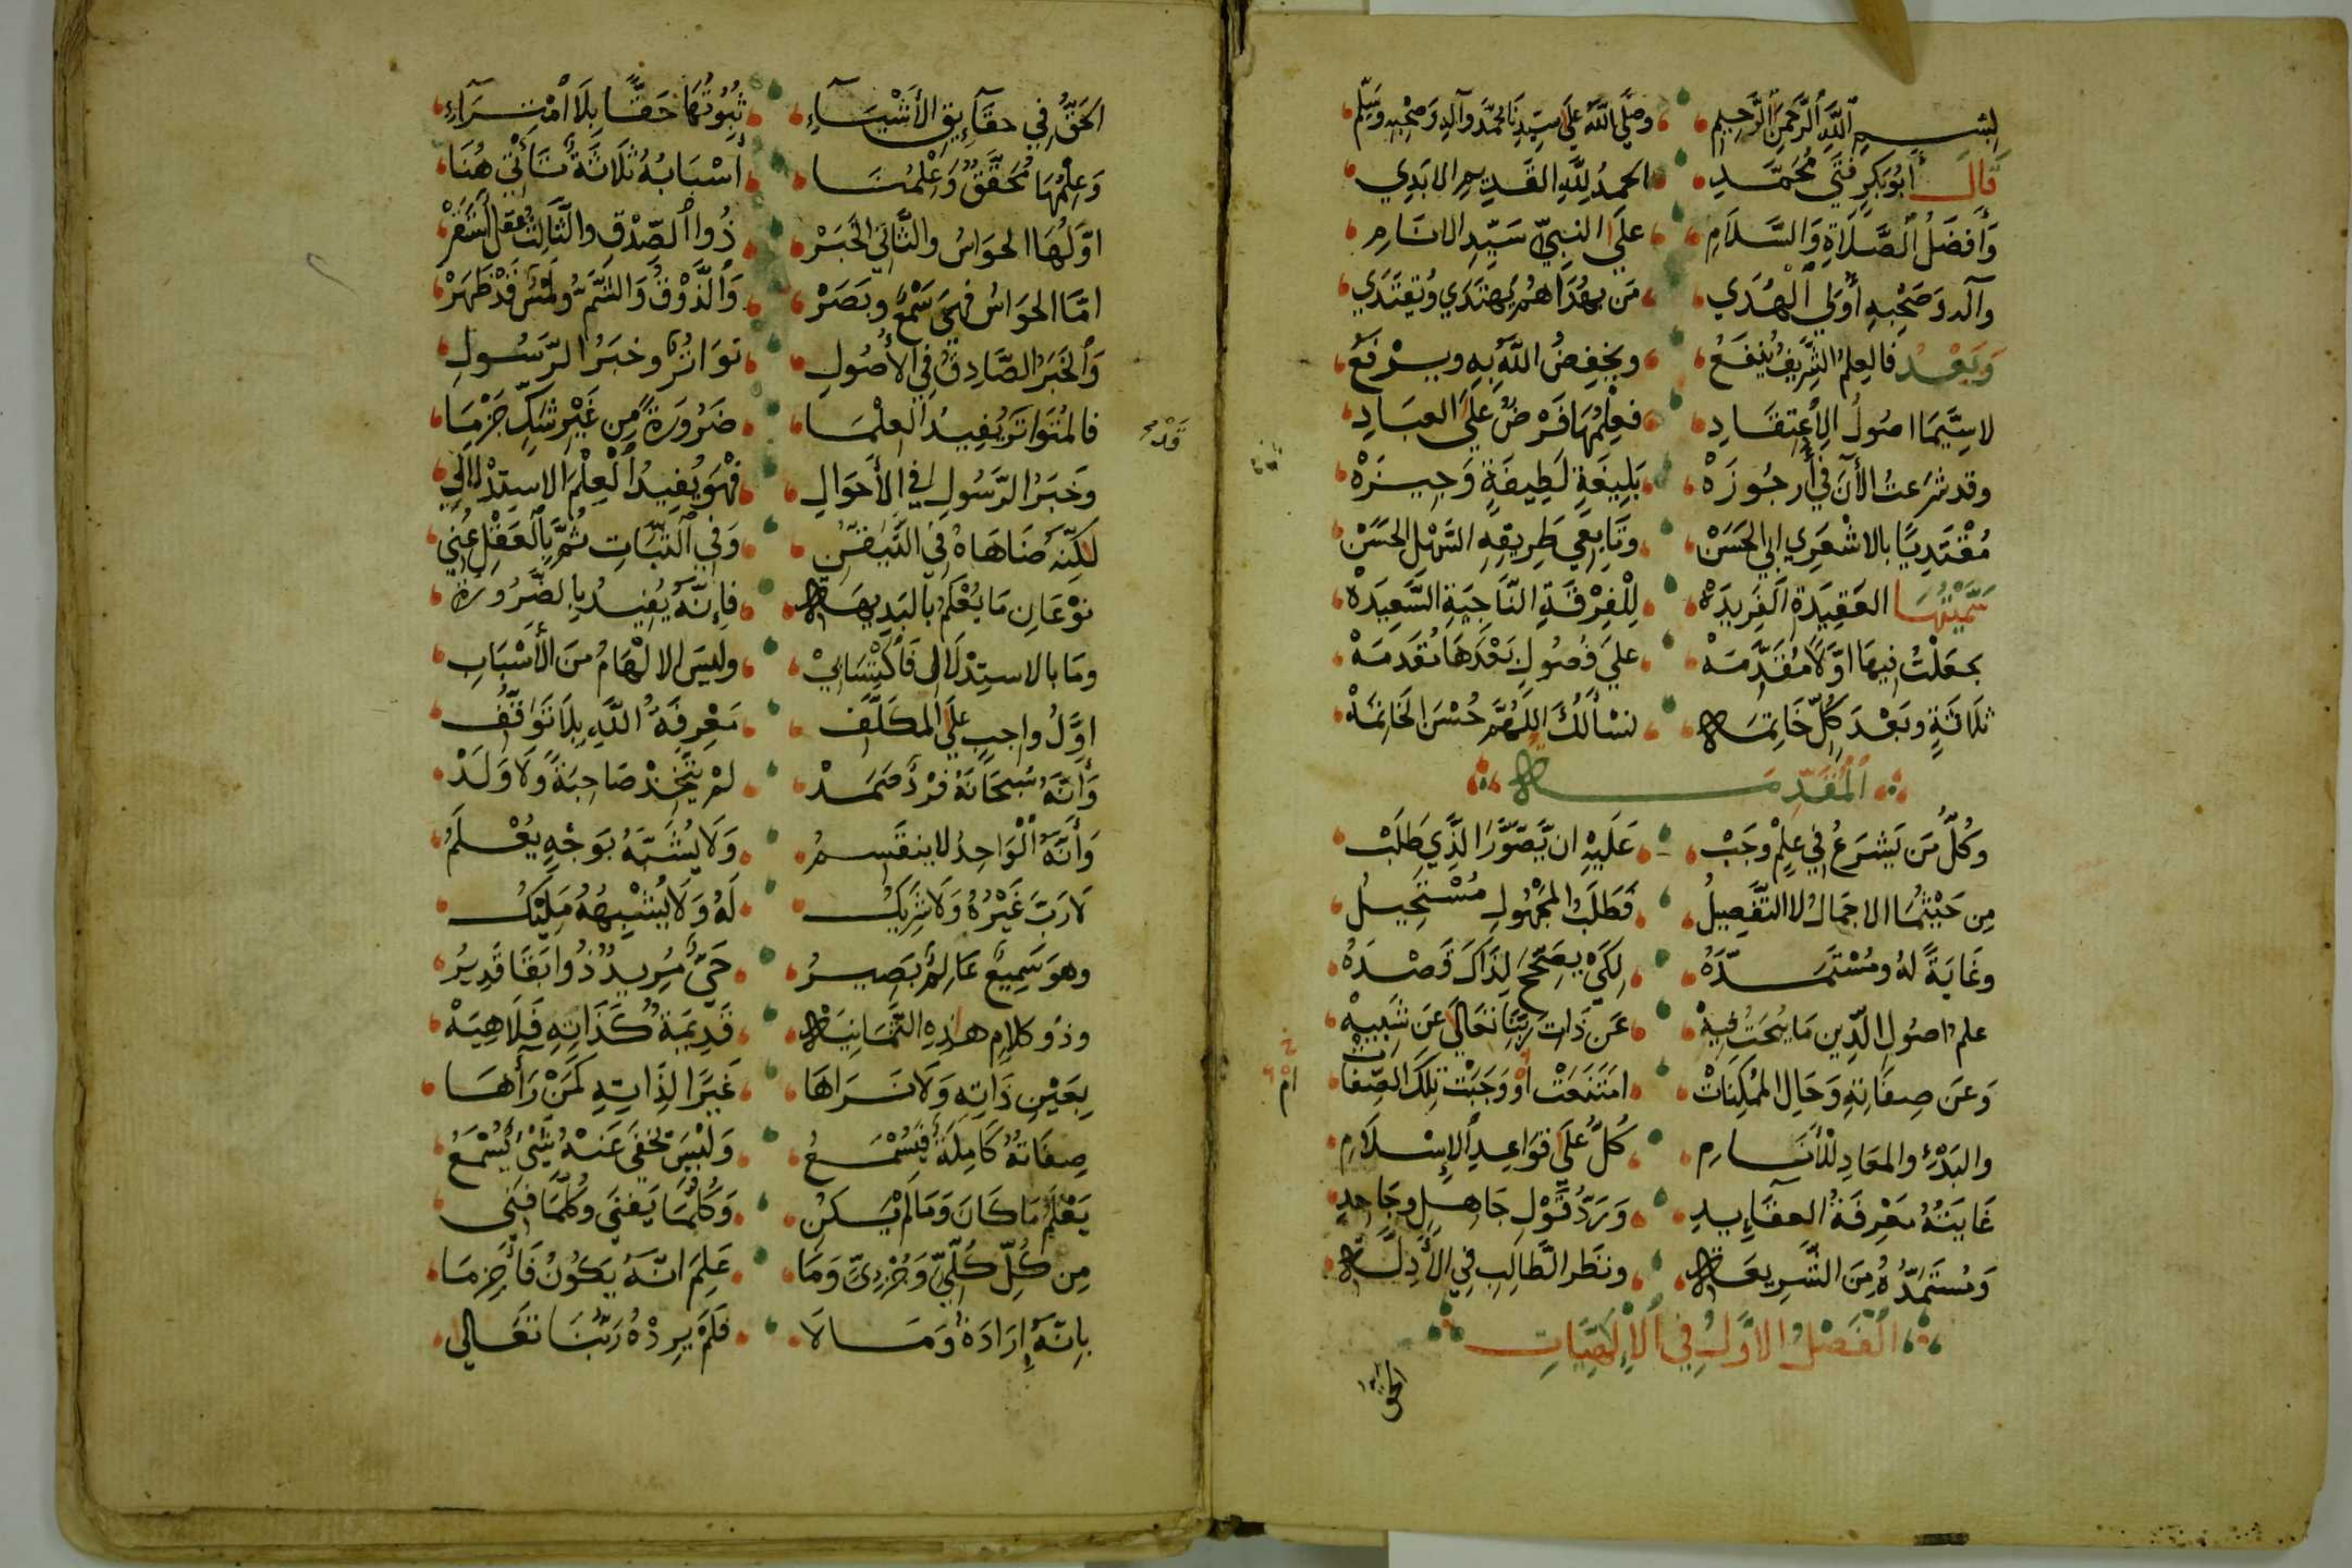 بِسْمِ اللَّهِ الرَّحْمَنِ الرَّحِيمِ وصَلَّى اللَّهُ عَلَى سَيِّدِنَا مُحَمَّدٍ وآلِهِ وَصَحْبِهِ وَسَلَّمَ
قَالَ أَبُو بَكْرٍ فَتَى مُحَمَّدِ الحمدُ لِلَّهِ القَدِيمِ الابَدِي
وَأَفضَلُ الصَّلَاةِ وَالسَّلَامِ عَلَى النبِيِّ سَيِّدِ الانَامِ
وآله وَصَحْبِهِ أُولِي الهُدَي مَن بِهُدَاهُم يُهتَدَي وَيُقتَدَي
وَبَعْدُ فالعِلمُ الشَّرِيفُ يُنفَعُ ويخفِضُ اللَّهُ بِهِ ويرْفَعُ
لاسِيَّمَا اصُولُ الِاعتِقَادِ فعِلْمُهَا فَرْضٌ عَلَى العِبَادِ
وقد شَرَعتُ الأنَ فِي أُرجُوزَهْ بَلِيغَةٍ لَطِيفَةٍ وَجِيزَهْ
مُقْتَدِيًا بالاشْعَرِي ابِي الحَسَنْ وتَابِعِي طَرِيقِهِ السَّهْلِ الحَسَنْ
سَمَّيْتُهَا العَقِيدَةَ الفَرِيدَهْ لِلْفِرْقَةِ النَّاجِيَةِ السَّعِيدَهْ
جَعَلْتُ فِيهَا اوَّلًا مُقَدَّمَهْ عَلَي فُصُولٍ بَعْدَهَا مُقَدَمَهْ
ثَلَاثَةٍ وبَعْدَ كُلٍّ خَاتِمَه نسْأَلُكَ اللَّهُمَّ حُسْنَ الخَاتِمَهْ
المُقَدِّمَه
وَكُلُّ مَن يَشرَعُ فِي عِلْمٍ وَجَبْ عَلَيْهِ ان يَّصَوَّرَ الَّذِي طَلَبْ
مِن حَيْثُمَا الاجمَالُ لا التَّفصِيلُ فَطَلَبُ المَجْهُولِ مُسْتَحِيلُ
وغَايَةً لَهُ ومُسْتَمَدَّهُ لِكَيْ يَصِحَّ لِذَاكَ قَصْدَهُ
علم اصُولِ الدِّين مَا يُبحَثُ فِيهْ عَن ذَاتِ رَبِّنَا تعَالَى عَن شَبِيهْ
وَعَن صِفَاتِهِ وَحَالِ المُمْكِنَاتْ امتَنَعَتْ أوْ وَجَبَتْ تِلكَ الصِّفَاتْ
والبَدْءِ والمعَادِ لْلأنَامِ كُلٌّ عَلَي قوَاعِدِ الإسْلَامِ
غَايَتُهُ مَعْرِفَةُ العقَايِدِ وَرَدُّ قَوْلِ جَاهِلٍ وجَاحِدِ
وَمُستَمَدُّهُ مِنَ الشَّرِيعَه ونَظَرِ الطَّالِبِ فِي الأدِلَّه
الفَصْلُ الاوَّلُ فِي الإلهِيَّاتِ
الحق
الحَقُّ فِي حقَآيِقِ الأشْيَآءِ ثُبُوتُهَا حَقًّا بِلَا امْتِرَآءِ
وَعِلْمُهَا مُحَقَّقٌ وَعِلْمُنَا أسْبَابُهُ ثَلَاثَةٌ تَأتِي هُنَا
اوَّلُهَا الحوَاسُ والثَّانِي الخَبَرْ ذُوا الصِّدْقِ والثَّالِثُ عقل
امَّا الحوَاسُ فَهيَ سَمْعٌ وبَصَرْ وَالذَّوْقُ وَالشَّمُّ ولَمْسٌ قَدْ ظَهَرْ
وَالخَبَرُ الصَّادِقُ فِي الأُصُولِ توَاتُرٌ وخبَرُ الرَّسُولِ
فالمُتوَاتَرَ يُفِيدُ العِلْمَا ضَرُورَةً مِن غَيْرِ شَكٍّ جَزْمَا
وخبَرُ الرَّسُولِ فِي الأَحْوَالِ فَهْوَ يُفِيدُ العِلْمَ الاستِدْلالِي
لَكِنَّه ضَاهَاهُ فِي التَّيَقُّنِ وَفِي الثَّبَاتِ ثُمَّ بِالعَقْلِ عُنِي
نوْعَانِ مَا يُعْلَمُ بالبَدِيهَه فإنَّهُ يُفِيدُ بِالضَّرُورَة
ومَا بالاستِدْلَالِ فَاكْتِسَابِيْ ولَيسَ الالْهَامُ مِنَ الأسْبَابِ
اوَّلُ واجِبٍ عَلَي المكَلَّفِ مَعْرِفَةُ اللَّهِ بِلَا تَوَقُّفِ
وَأنَّهُ سُبْحَانَهُ فرْدٌ صَمَدْ لم يَتَّخِذْ صَاحِبَةً وَلَا وَلَدْ
وَأنَّهُ الوَاحِدُ لا ينقَسِمُ وَلَا يُشَبَّهُ بوَجْهٍ يُعْلَمُ
لَا رَبَّ غَيْرُهُ وَلَا شَرِيكُ لَهُ وَلَا يُشْبِهُهُ مَلِيكُ
وهوَ سَمِيعٌ عَالِمٌ بَصِيرُ حَيٌّ مُرِيدٌ ذُوا بَقَا قَدِيرُ
وذو كلامٍ هذِهِ الثمَانِيَه قَدِيمَةٌ كَذَاتِهِ فَلَا هِيَهْ
بِعَيْنِ ذَاتِهِ وَلَا نَرَاهَا غَيرًا لِذَاتِهِ كَمَنْ رَأهَا
صِفَاتُهُ كَامِلَةٌ فيَسْمَعُ وَلَيْسَ يَخفَى عَنهُ شَيْءٌ يُسْمَعُ
يَعْلَمُ مَا كَانَ وَمَا لَم يَكُنِ وَكُلَّمَا يَفنَى وكُلَّمَا فنِي
مِن كُلِّ كُلِّيٍّ وَجُزْئِيٍّ وَمَا عَلِمَ انَّهُ يَكُونُ فَأجْزِمَا
بِانَّهُ إرَادَةٌ وَمَا لَا فَلَمْ يرِدْهُ رَبُّنَا تعَالَى